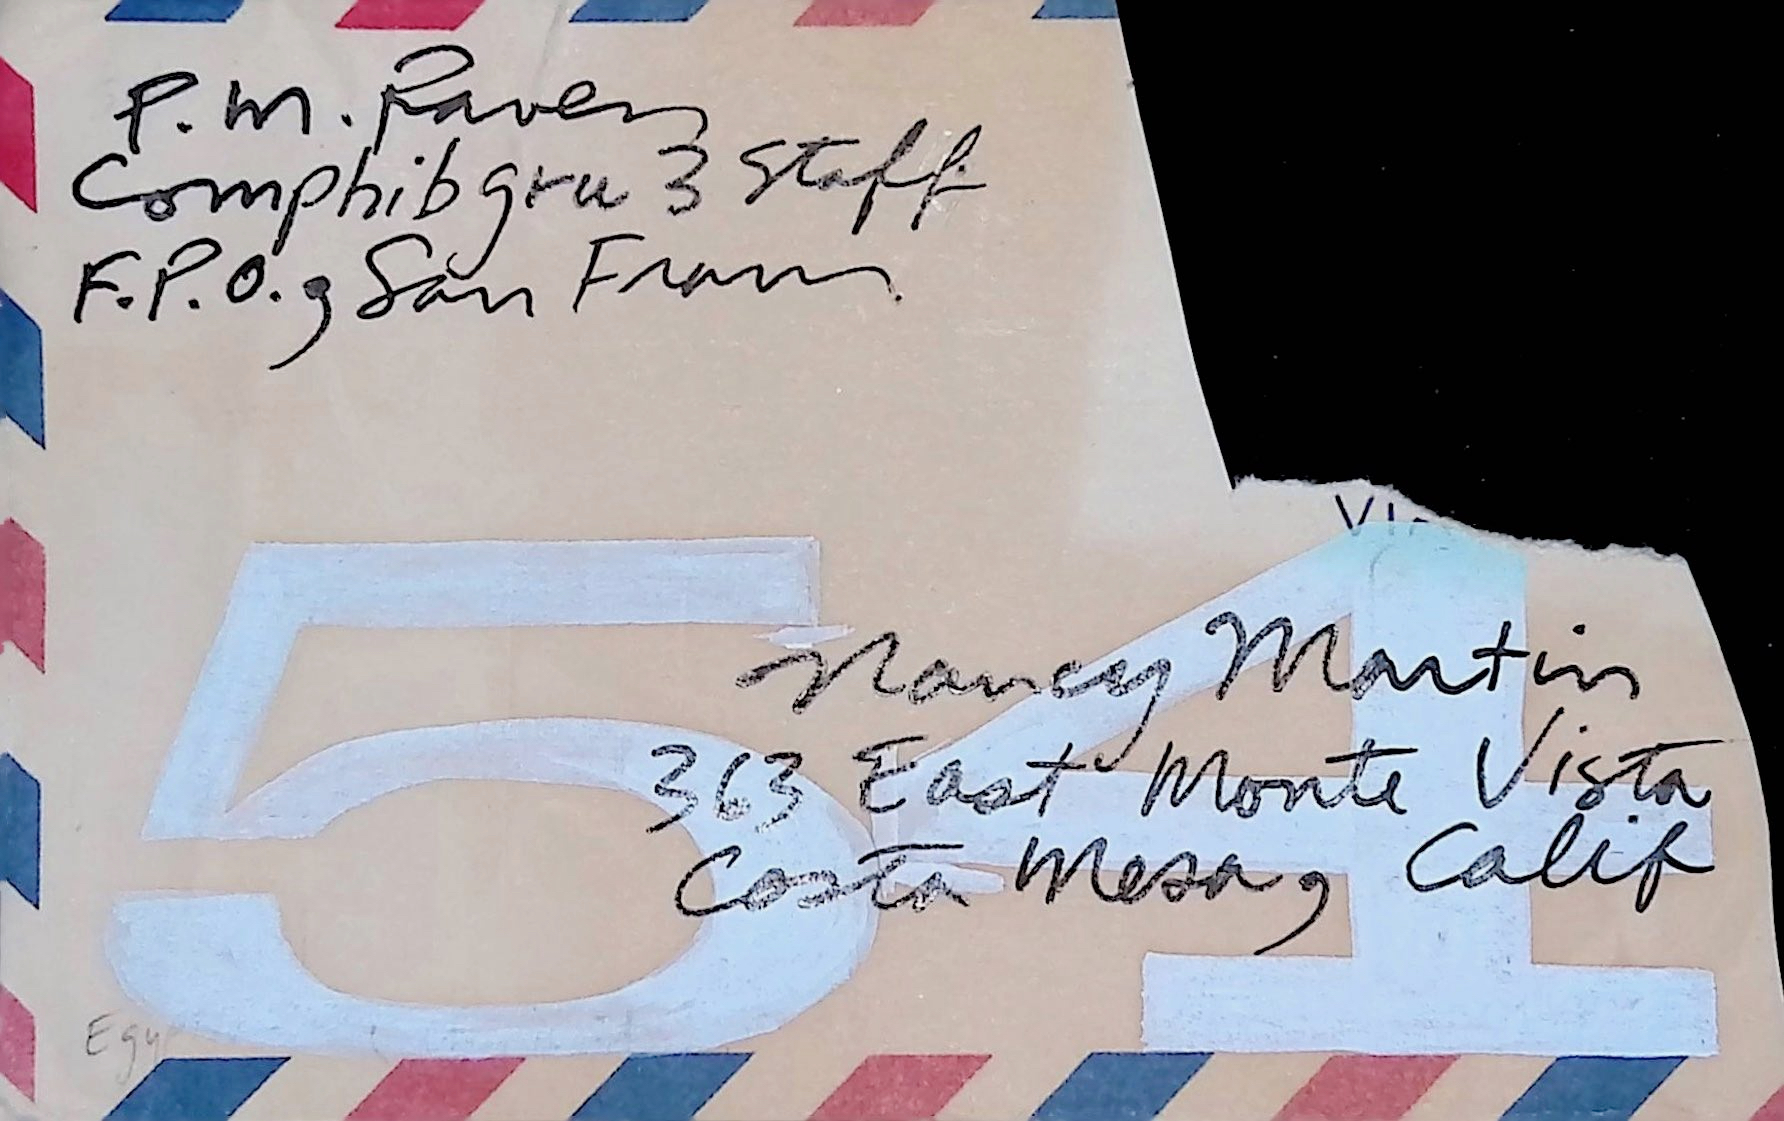 P.M. Raven
Comphibgru 3 Staff
F.P.O., San Fran.
54
Nancy Martin
363 East Monte Vista
Costa Mesa, Calif